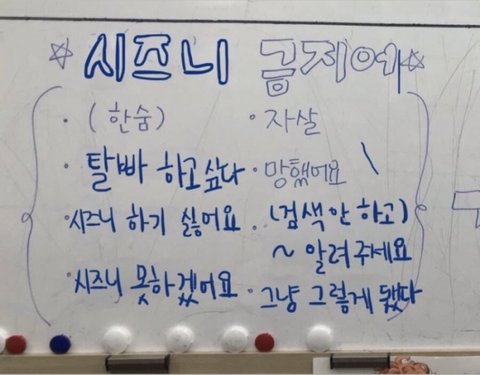 ☆ 시즈니 금지어 ☆
· (한숨)
· 탈빠 하고싶다
· 시즈니 하기 싫어요
· 시즈니 못하겠어요
· 자살
· 망했어요
· (검색 안 하고)
~ 알려주세요
· 그냥 그렇게 됐다